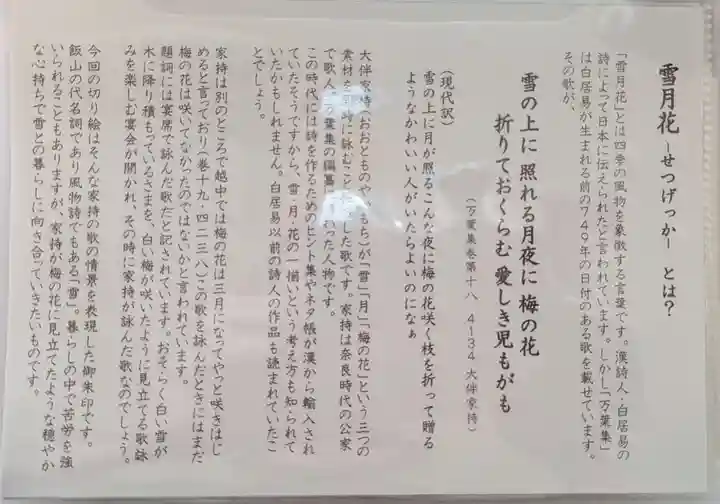 雪月花 ―せつげっか― とは？
「雪月花」とは四季の風物を象徴する言葉です。漢詩人・白居易の
詩によって日本に伝えられたと言われています。しかし「万葉集」
は白居易が生まれる前の749年の日付のある歌を載せています。
その歌が、
雪の上に 照れる月夜に 梅の花
折りておくらむ 愛しき児もがも
（万葉集巻第十八 4134 大伴家持）
（現代訳）
雪の上に月が照るこんな夜に梅の花咲く枝を折って贈る
ようなかわいい人がいたらよいのになぁ
大伴家持（おおとものやかもち）が「雪」「月」「梅の花」という三つの
素材を同時に詠むこと した歌です。家持は奈良時代の公家
で歌人 葉集の編纂 わった人物です。
この時代には詩を作るためのヒント集やネタ帳が漢から輸入され
ていたそうですから、雪・月・花の一揃いという考え方も知られて
いたかもしれません。白居易以前の詩人の作品も読まれていたこ
とでしょう。
家持は別のところで越中では梅の花は三月になってやっと咲きはじ
めると言っており（巻十九・四二三八）この歌を詠んだときにはまだ
梅の花は咲いてなかったのではないかと言われています。
題詞には宴席で詠んだ歌だと記されています。おそらく白い雪が
木に降り積もっているさまを、白い梅が咲いたように見立てる歌詠
みを楽しむ宴会が開かれ、その時に家持が詠んだ歌なのでしょう。
今回の切り絵はそんな家持の歌の情景を表現した御朱印です。
飯山の代名詞であり風物詩でもある「雪」。暮らしの中で苦労を強
いられることもありますが、家持が梅の花に見立てたような穏やか
な心持ちで雪との暮らしに向き合っていきたいものです。